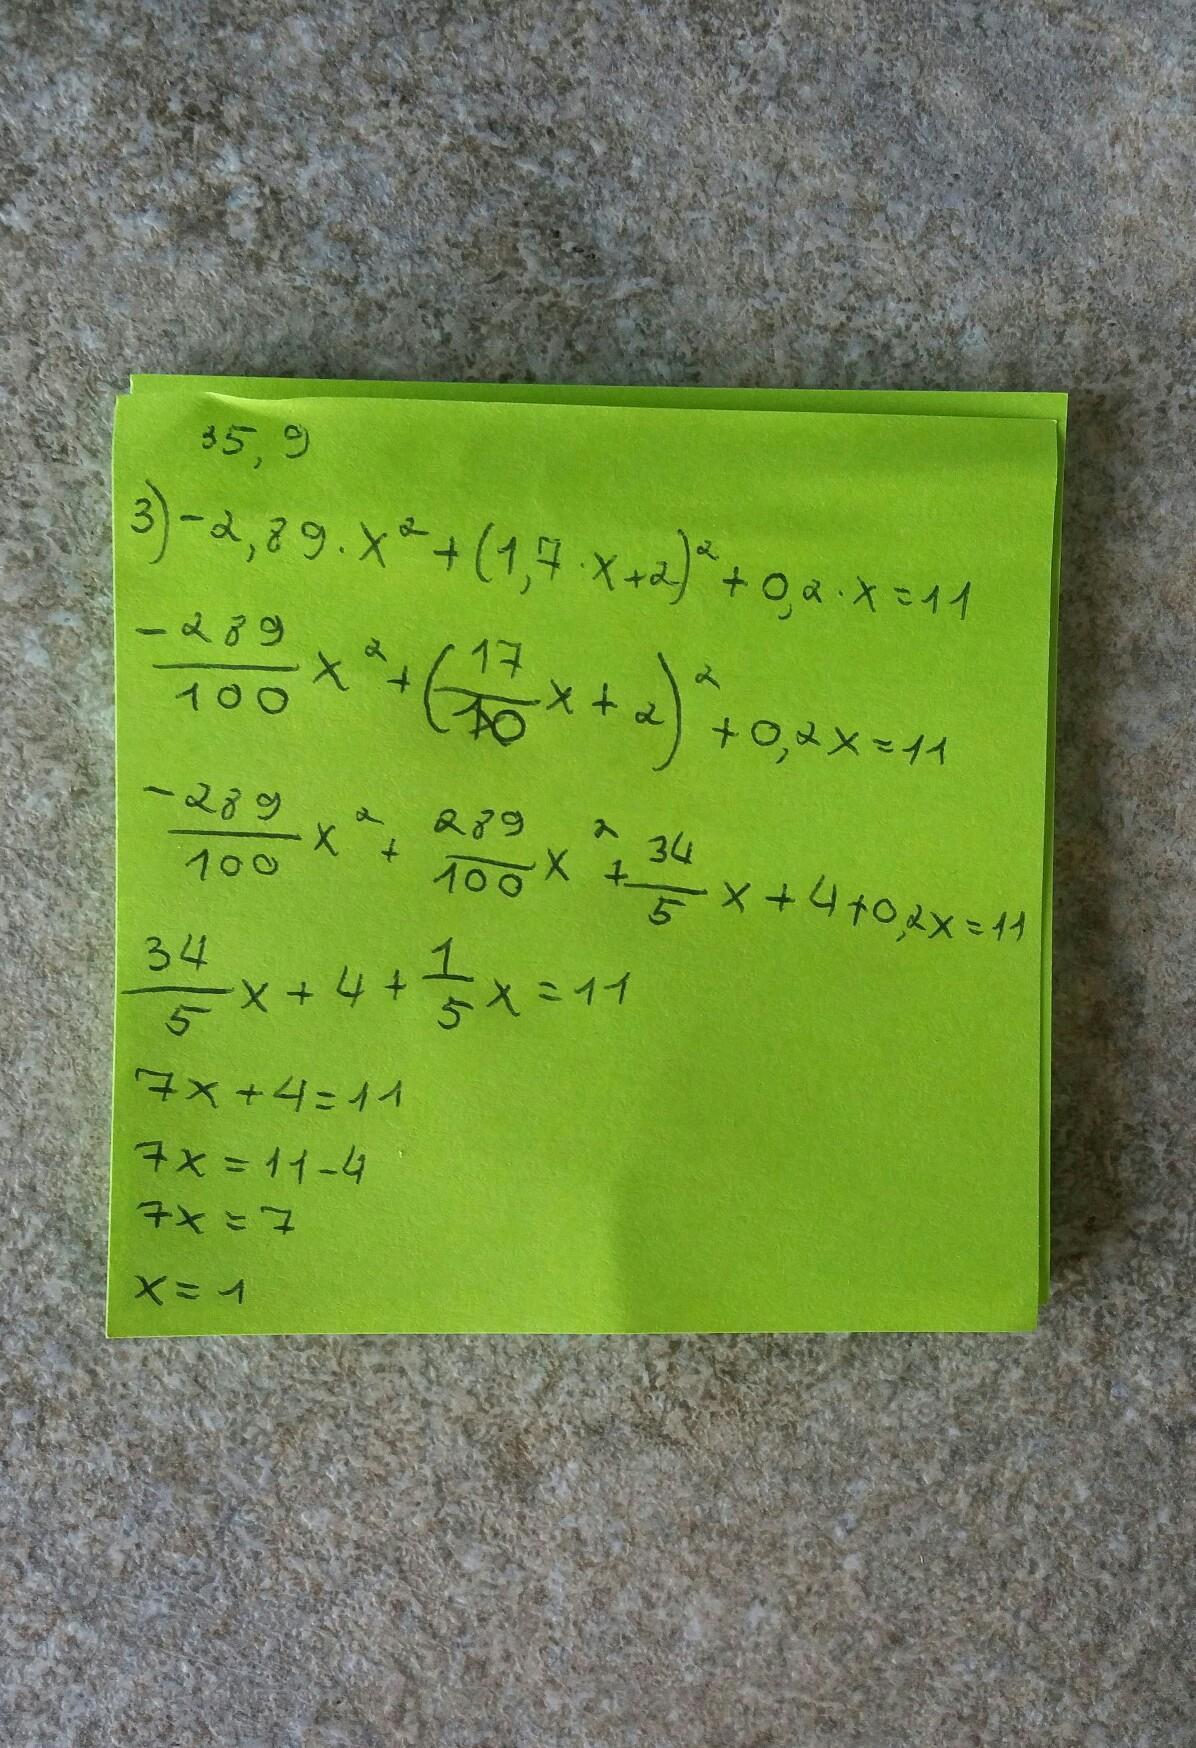 35,9
3) -2,89·x²+(1,7·x+2)²+0,2·x=11
-289/100 x²+(17/10 x+2)²+0,2x=11
-289/100 x²+289/100 x²+34/5 x+4+0,2x=11
34/5 x+4+1/5 x=11
7x+4=11
7x=11-4
7x=7
x=1